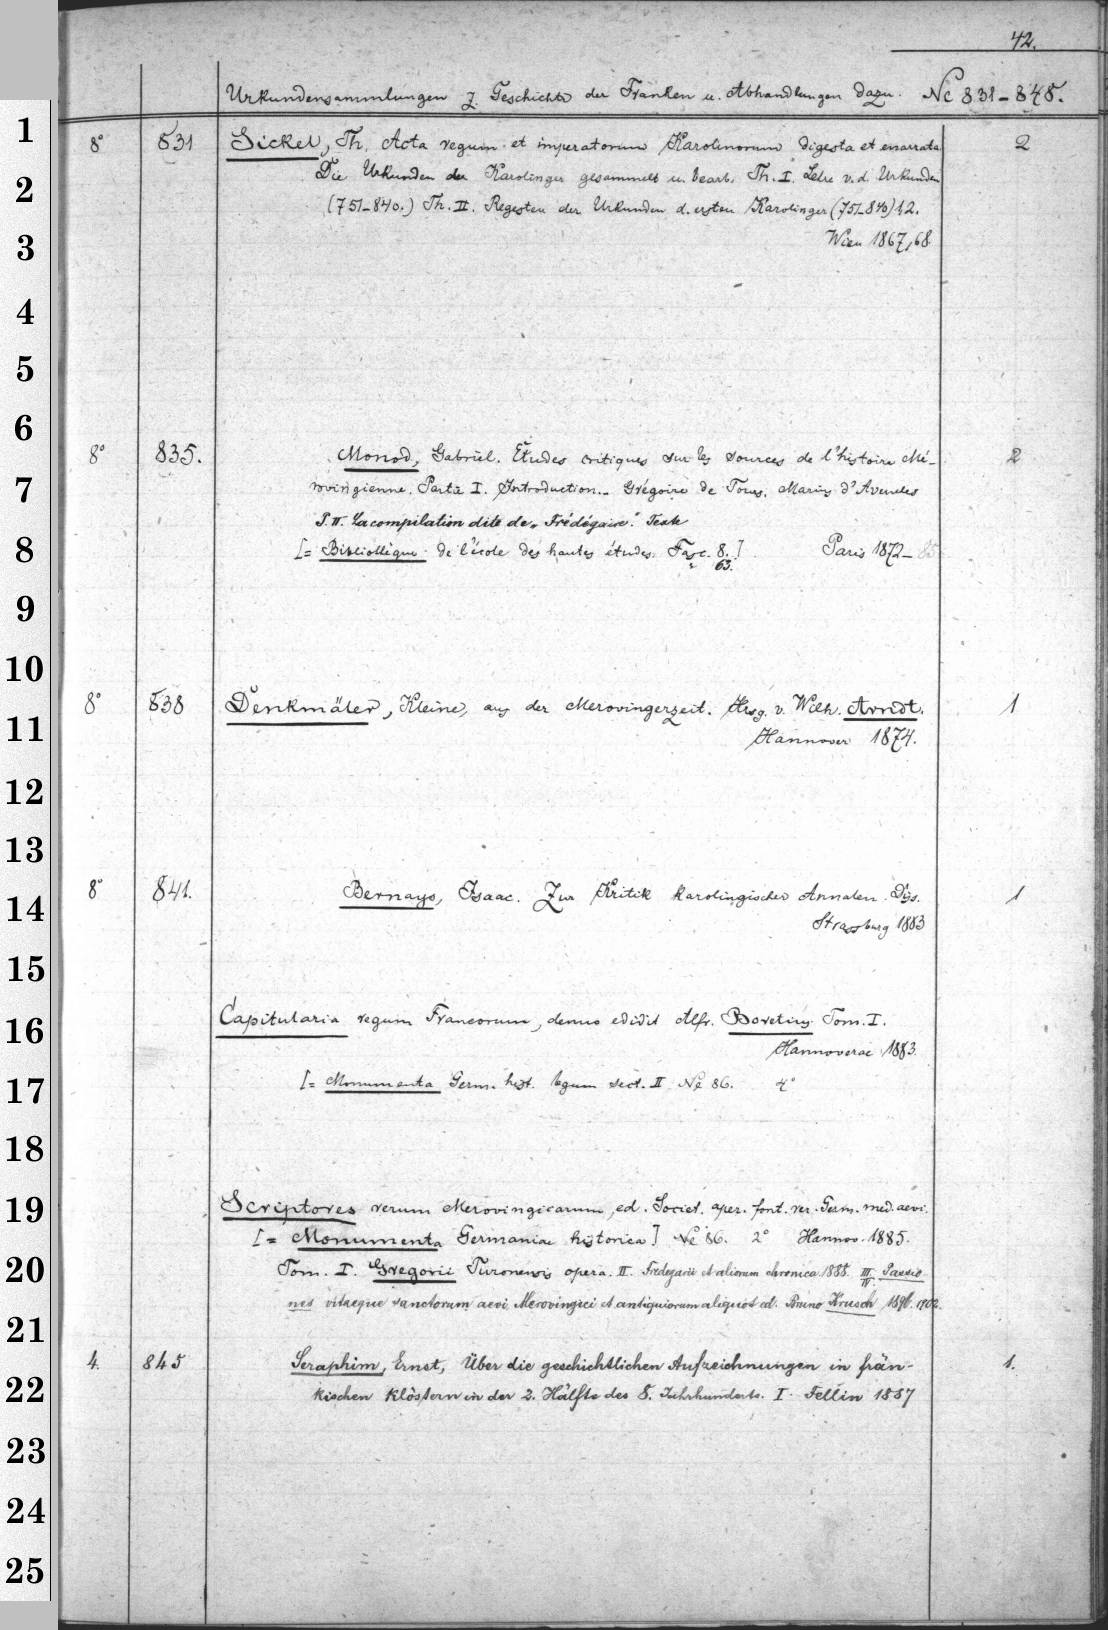 42.
Urkundensammlungen z. Geschichte der Franken u. Abhandlungen dazu. Nc 831-845.
8° 831 Sickel, Th. Acta regum et imperatorum Karolinorum digesta et enarrata 2
Die Urkunden der Karolinger gesammelt u. bearb. Th. I. Lehre v. d. Urkunden
(751-840.) Th. II. Regesten der Urkunden d. ersten Karolinger (751-840) 1,2.
Wien 1867,68
8° 835. Monod, Gabriel. Études critiques sur les sources de l'histoire Mé- 2
rovingienne. Partie I. Introduction._ Grégoire de Tours. Marius d'Avenches
P. II. La compilation dite de „Frédégaire". Texte
[= Bibliothèque de l'école des hautes études. Fasc. 8. 63.] Paris 1872-85
8° 838 Denkmäler, Kleine, aus der Merovingerzeit. Hrsg. v. Wilh. Arndt. 1
Hannover 1874.
8° 841. Bernays, Isaac. Zur Kritik karolingischer Annalen. Diss. 1
Strassburg 1883
Capitularia regum Francorum, denuo edidit Alfr. Boretius Tom. I.
Hannoverae 1883.
[= Monumenta Germ. hist. legum sect. II Nc 86. 4°
Scriptores rerum Merovingicarum, ed. Societ. aper. font. rer. Germ. med. aevi.
[= Monumenta Germaniae historica] Nc 86. 2° Hannov. 1885.
Tom. I. Gregorii Turonensis opera. II. Fredegarii et aliorum chronica 1888. III. IV. Passio-
nes vitaeque sanctorum aevi Merovingici et antiquiorum aliquot ed. Bruno Krusch 1896. 1902.
4. 845 Seraphim, Ernst, Über die geschichtlichen Aufzeichnungen in frän- 1.
kischen Klöstern in der 2. Hälfte des 8. Jahrhunderts. I. Fellin 1887
1
2
3
4
5
6
7
8
9
10
11
12
13
14
15
16
17
18
19
20
21
22
23
24
25